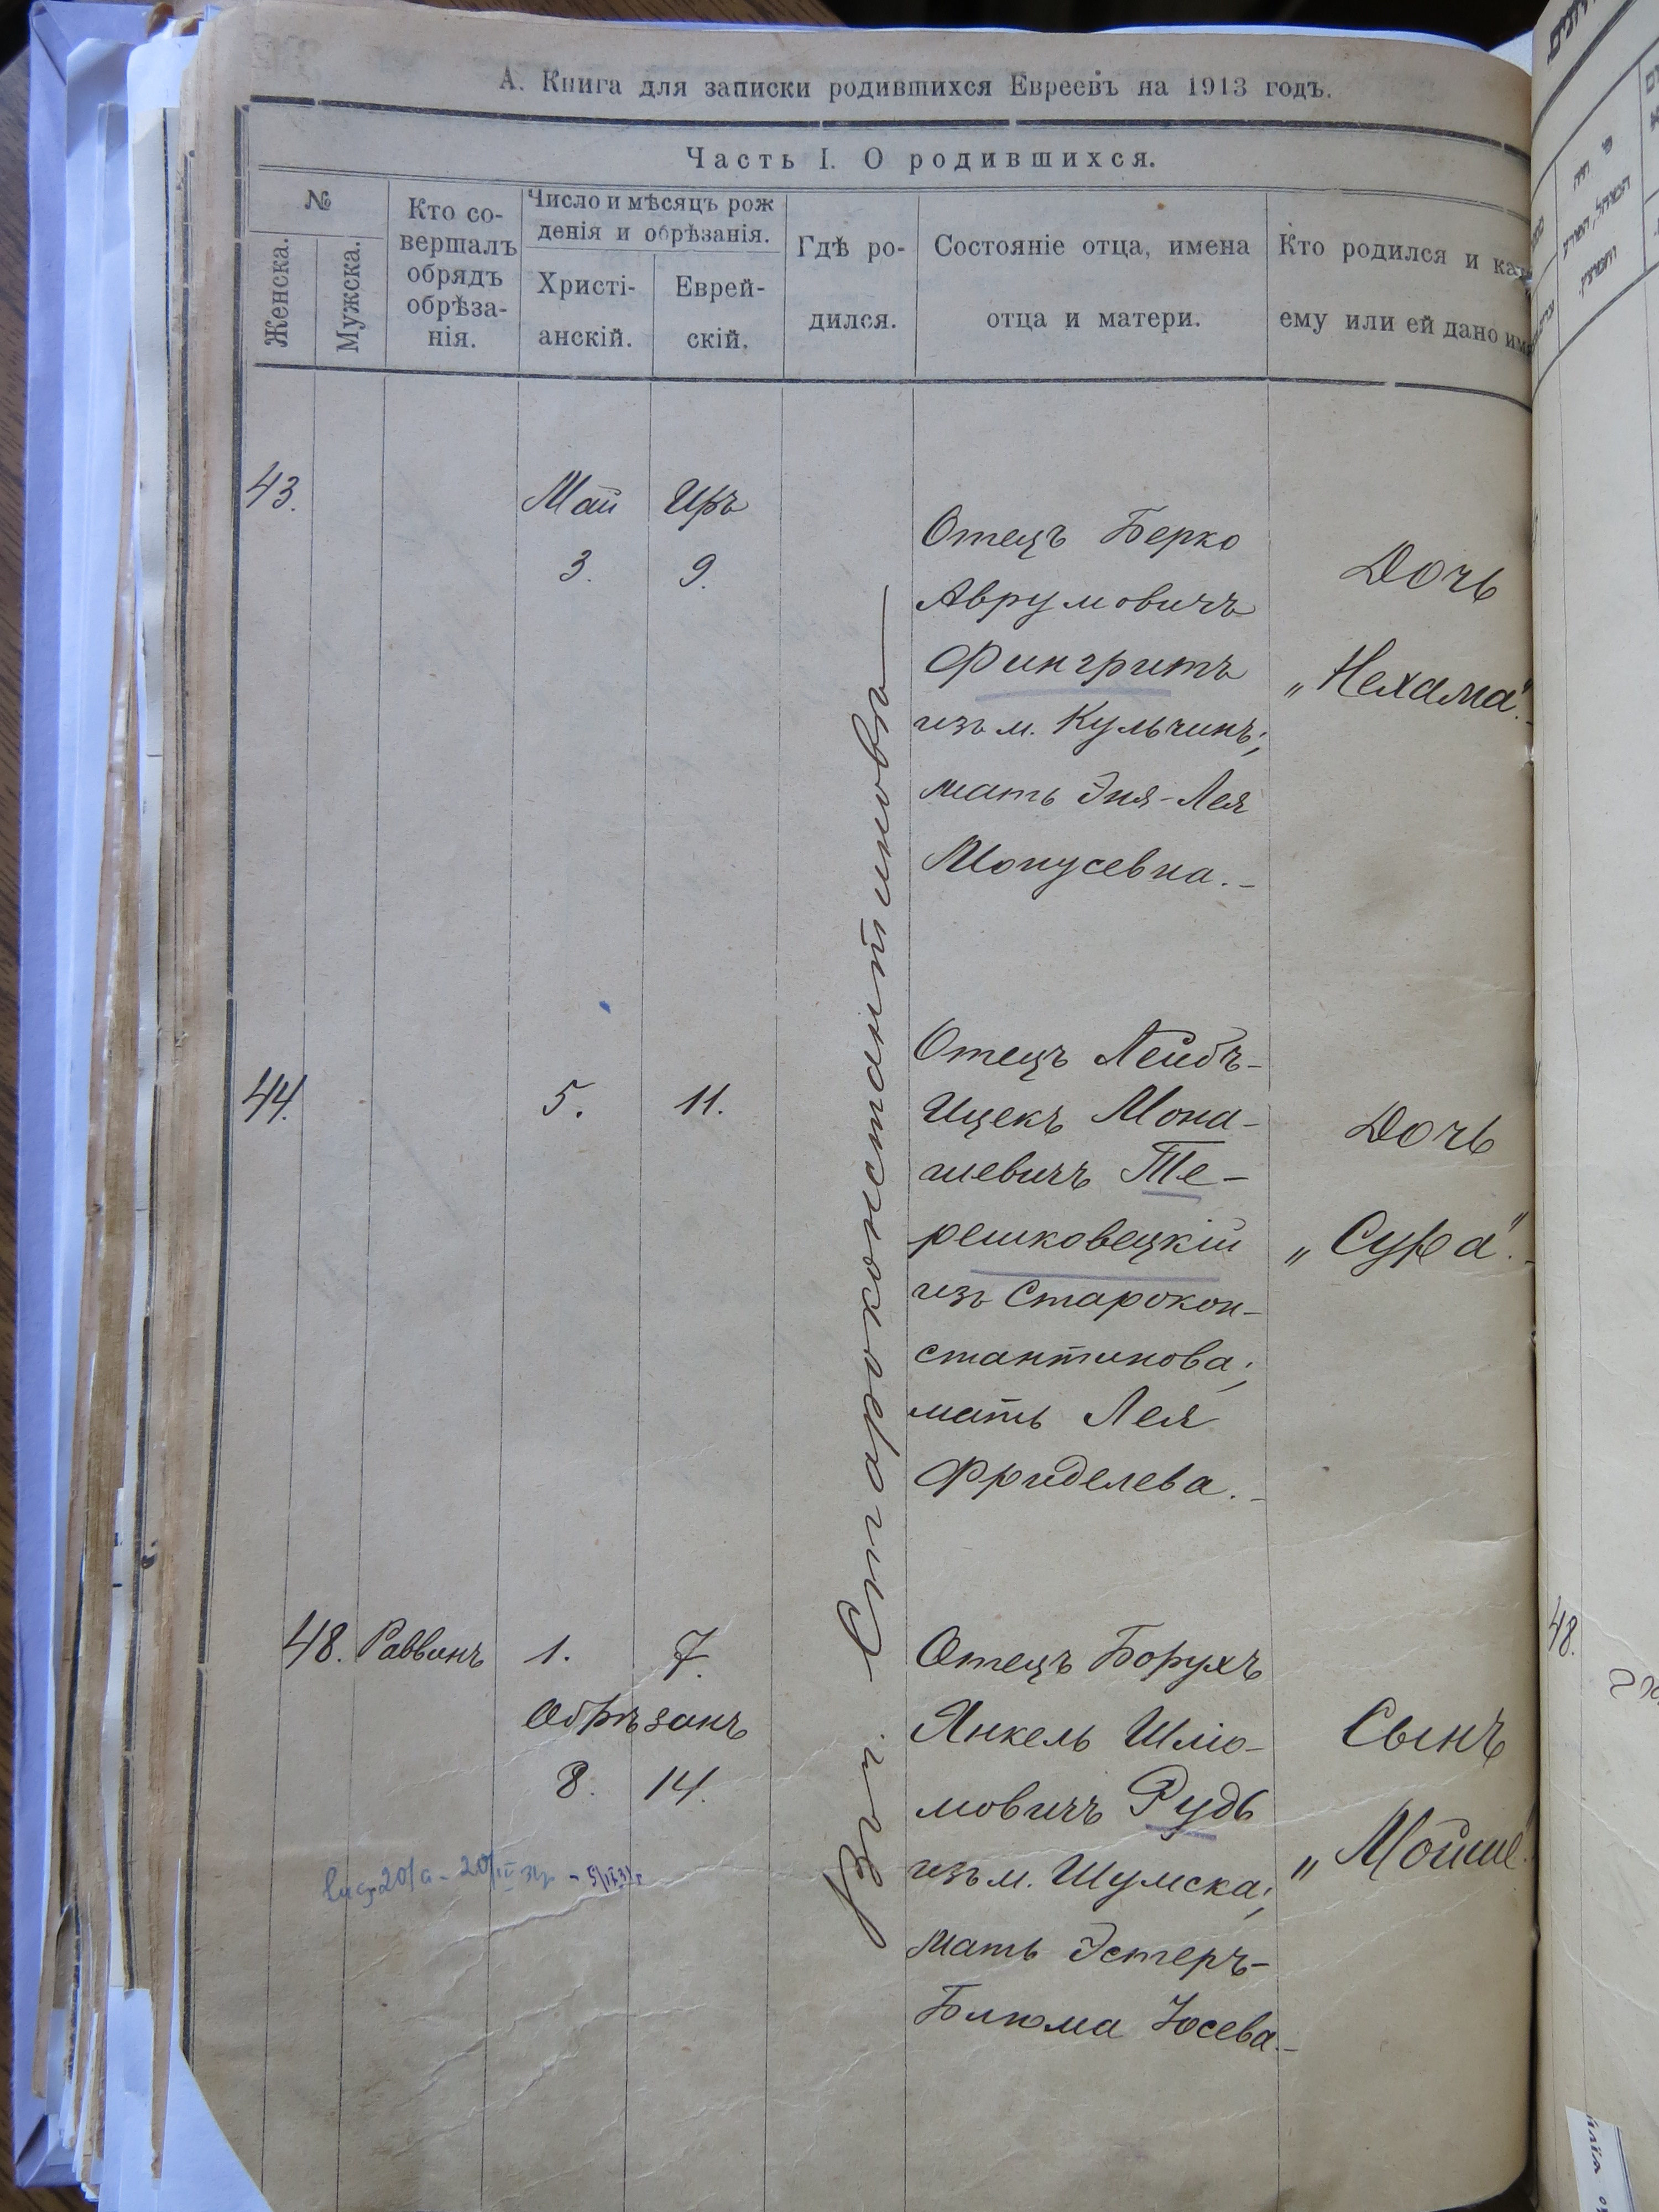 А. Книга для записки родившихся Евреевъ на 1913 годъ.
Часть I. О родившихся.
№
Женска.
Мужска.
Кто со-
вершалъ
обрядъ
обрѣза-
нія.
Число и мѣсяцъ рож
денія и обрѣзанія.
Христі-
анскій.
Еврей-
скій.
Гдѣ ро-
дился.
Состояніе отца, имена
отца и матери.
Кто родился и как
ему или ей дано имя
43.
Май Иръ
3. 9.
Отецъ Берко
Аврумовичъ
Фингритъ
изъ м. Кульчинъ;
мать Эня-Лея
Мопусевна.-
Дочь
„Нехама".-
44.
5. 11.
Отецъ Лейбъ-
Ицекъ Мона-
шевичъ Те-
решковецкій
изъ Старокон-
стантинова;
мать Лея
Фриделева.-
Дочь
„Сура".-
48. Раввинъ 1. 7.
Обрѣзанъ
8. 14.
Отецъ Борухъ
Янкель Шліо-
мовичъ Рудь
изъ м. Шумска;
мать Эстеръ-
Блюма Іосева.-
Сынъ
„Мойше"
Въ г. Староконстантиновѣ
48.